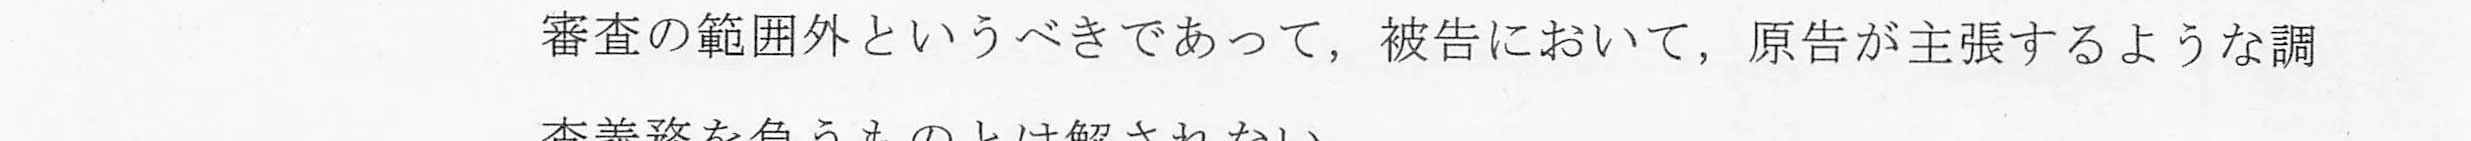 審査の範囲外というべきであって，被告において，原告が主張するような調
査義務を負うものとは解されない